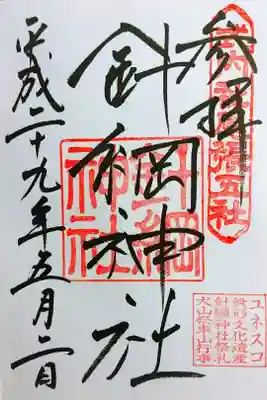 参拝
針綱神社
平成二十九年五月二日
針綱
神社
ユネスコ
無形文化遺産
針綱神社祭礼
犬山祭車山行事